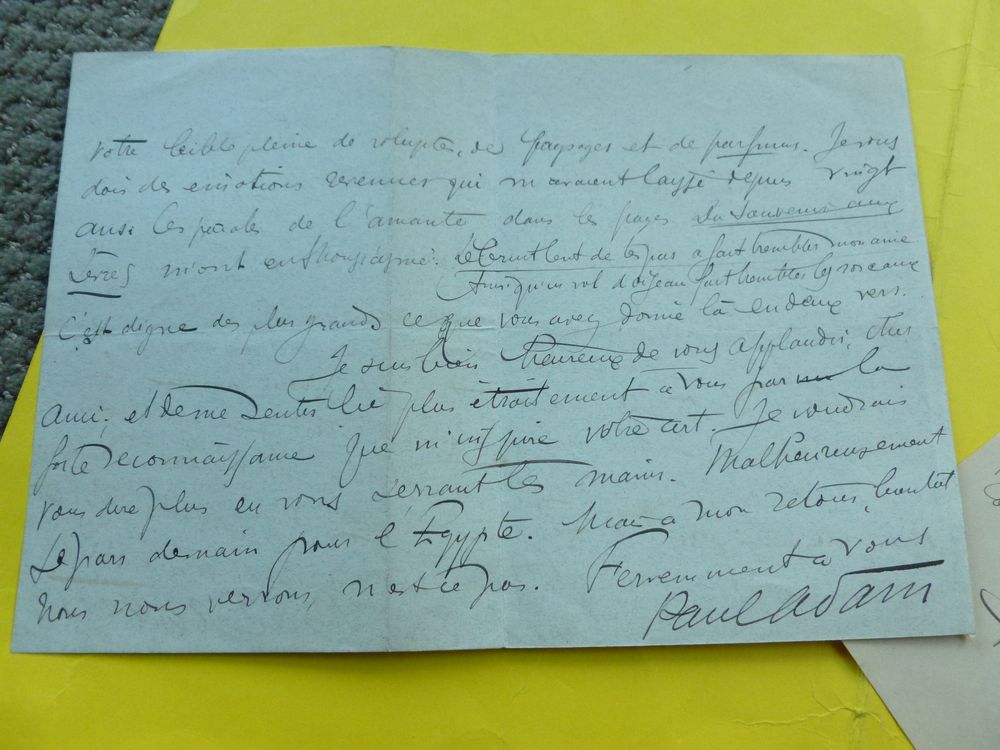 votre bible pleine de volupté, de paysages et de parfums. Je vous
dois des émotions revenues qui m'avaient laissé depuis vingt
ans. Les paroles de l'amante dans les pages Du Souvenir aux
Lèvres m'ont enthousiasmé.
Le tremblement de tes pas a fait trembler mon âme
Ainsi qu'un vol d'oiseau fait trembler les roseaux
C'est digne des plus grands ce que vous avez donné là en deux vers.
Je suis bien heureux de vous applaudir, cher
ami, et de me sentir lié plus étroitement à vous par la
forte reconnaissance que m'inspire votre art. Je voudrais
vous dire plus en vous serrant les mains. Malheureusement
je pars demain pour l'Egypte. Mais à mon retour, bientôt
nous nous verrons, n'est-ce pas. Fervemment à vous
Paul Adam